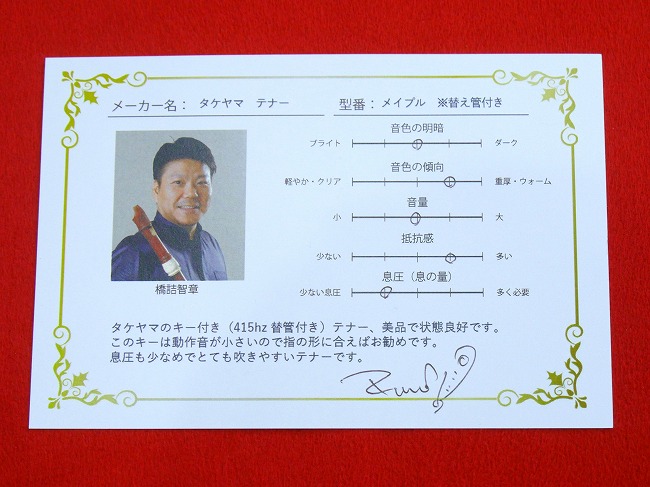 メーカー名： タケヤマ テナー 型番： メイプル ※替え管付き
音色の明暗
ブライト ダーク
音色の傾向
軽やか・クリア 重厚・ウォーム
音量
小 大
抵抗感
少ない 多い
息圧（息の量）
少ない息圧 多く必要
橋詰智章
タケヤマのキー付き（415hz 替管付き）テナー、美品で状態良好です。
このキーは動作音が小さいので指の形に合えばお勧めです。
息圧も少なめでとても吹きやすいテナーです。